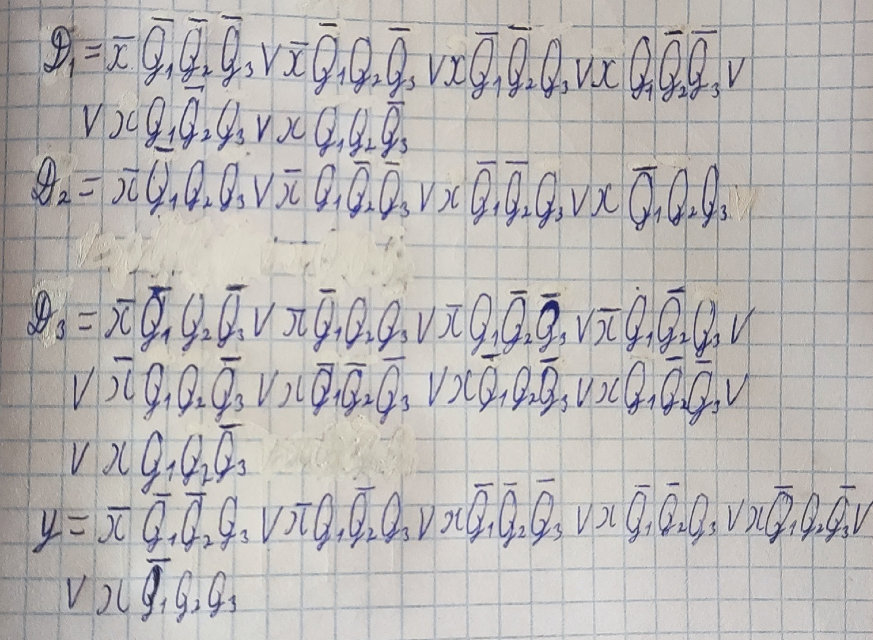 D₁ = x̄ Q̄₁Q̄₂Q̄₃ V x̄ Q̄₁Q₂Q̄₃ V x Q̄₁Q̄₂Q₃ V x Q₁Q̄₂Q̄₃ V
V x Q₁Q̄₂Q₃ V x Q₁Q₂Q̄₃
D₂ = x̄ Q̄₁Q₂Q₃ V x̄ Q₁Q̄₂Q̄₃ V x Q̄₁Q̄₂Q₃ V x Q̄₁Q₂Q₃
D₃ = x̄ Q̄₁Q₂Q̄₃ V x̄ Q̄₁Q₂Q₃ V x̄ Q₁Q̄₂Q̄₃ V x̄ Q₁Q̄₂Q₃ V
V x̄ Q₁Q₂Q̄₃ V x Q̄₁Q̄₂Q̄₃ V x Q̄₁Q₂Q̄₃ V x Q₁Q̄₂Q̄₃ V
V x Q₁Q₂Q̄₃
y = x̄ Q̄₁Q̄₂Q₃ V x̄ Q₁Q̄₂Q₃ V x Q̄₁Q̄₂Q̄₃ V x Q̄₁Q̄₂Q₃ V x Q̄₁Q₂Q̄₃ V
V x Q̄₁Q₂Q₃